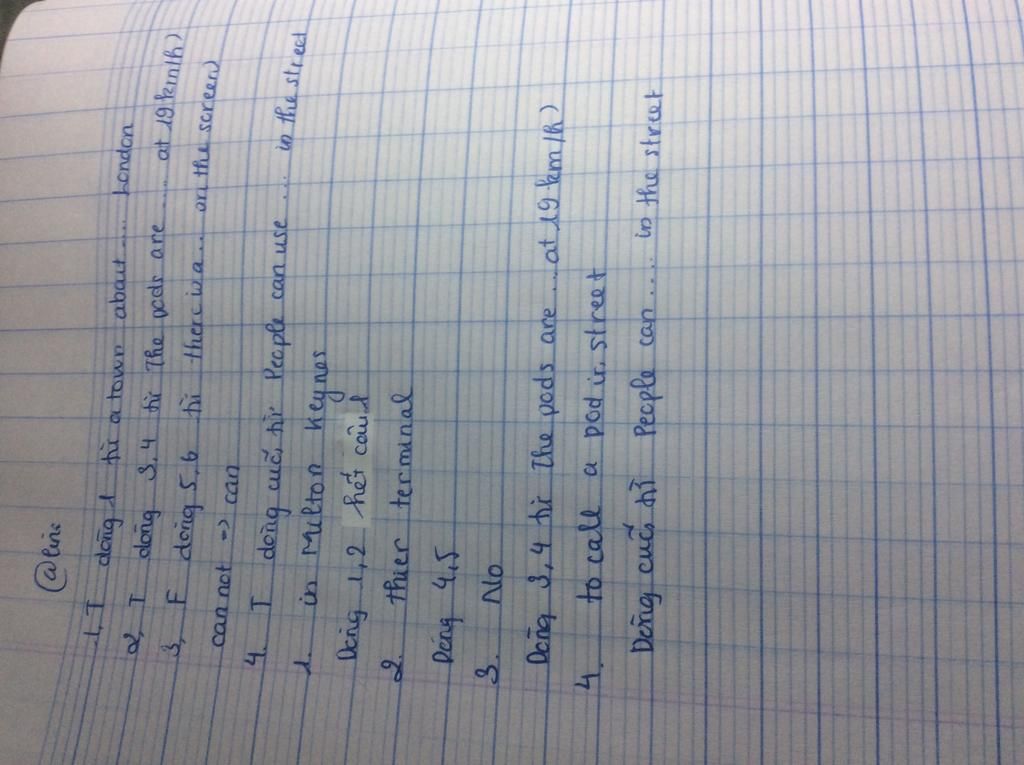 @line
1, T dòng 1 từ a town about .... London
2, T dòng 3,4 từ The pods are .... at 19 km/h)
3, F dòng 5,6 từ there is a ... on the screen)
can not => can
4. T dòng cuối từ People can use ... in the street
1. in Milton Keynes
Dòng 1,2 hết câu 1
2. thier terminal
Dòng 4,5
3. No
Dòng 3,4 từ The pods are ... at 19 km/h)
4. to call a pod in street
Dòng cuối từ People can .... in the street